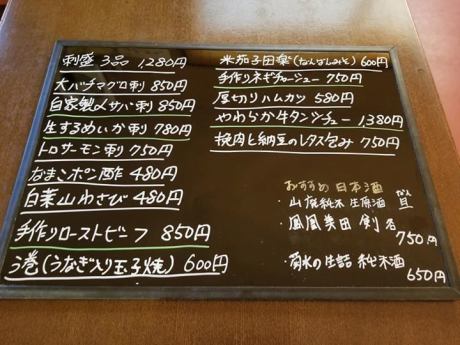 刺盛 3品 1280円
大バチマグロ刺 850円
自家製〆サバ刺 850円
生するめいか刺 780円
トロサーモン刺 750円
なまこポン酢 480円
白菜山わさび 480円
手作りローストビーフ 850円
う巻(うなぎ入り玉子焼) 600円
米茄子田楽(なんばんみそ) 600円
手作りネギチャーシュー 750円
厚切りハムカツ 580円
やわらか牛タンシチュー 1380円
挽肉と納豆のレタス包み 750円
おすすめ 日本酒
・山廃純米 生原酒
・鳳凰美田 剣 各
750円
・菊水の生詰 純米酒
650円